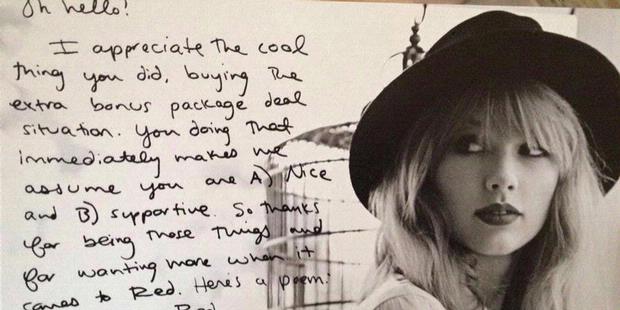 Oh hello!
I appreciate the cool
thing you did, buying the
extra bonus package deal
situation. You doing that
immediately makes me
assume you are A) Nice
and B) supportive. So thanks
for being those things and
for wanting more when it
comes to Red. Here's a poem:
Red